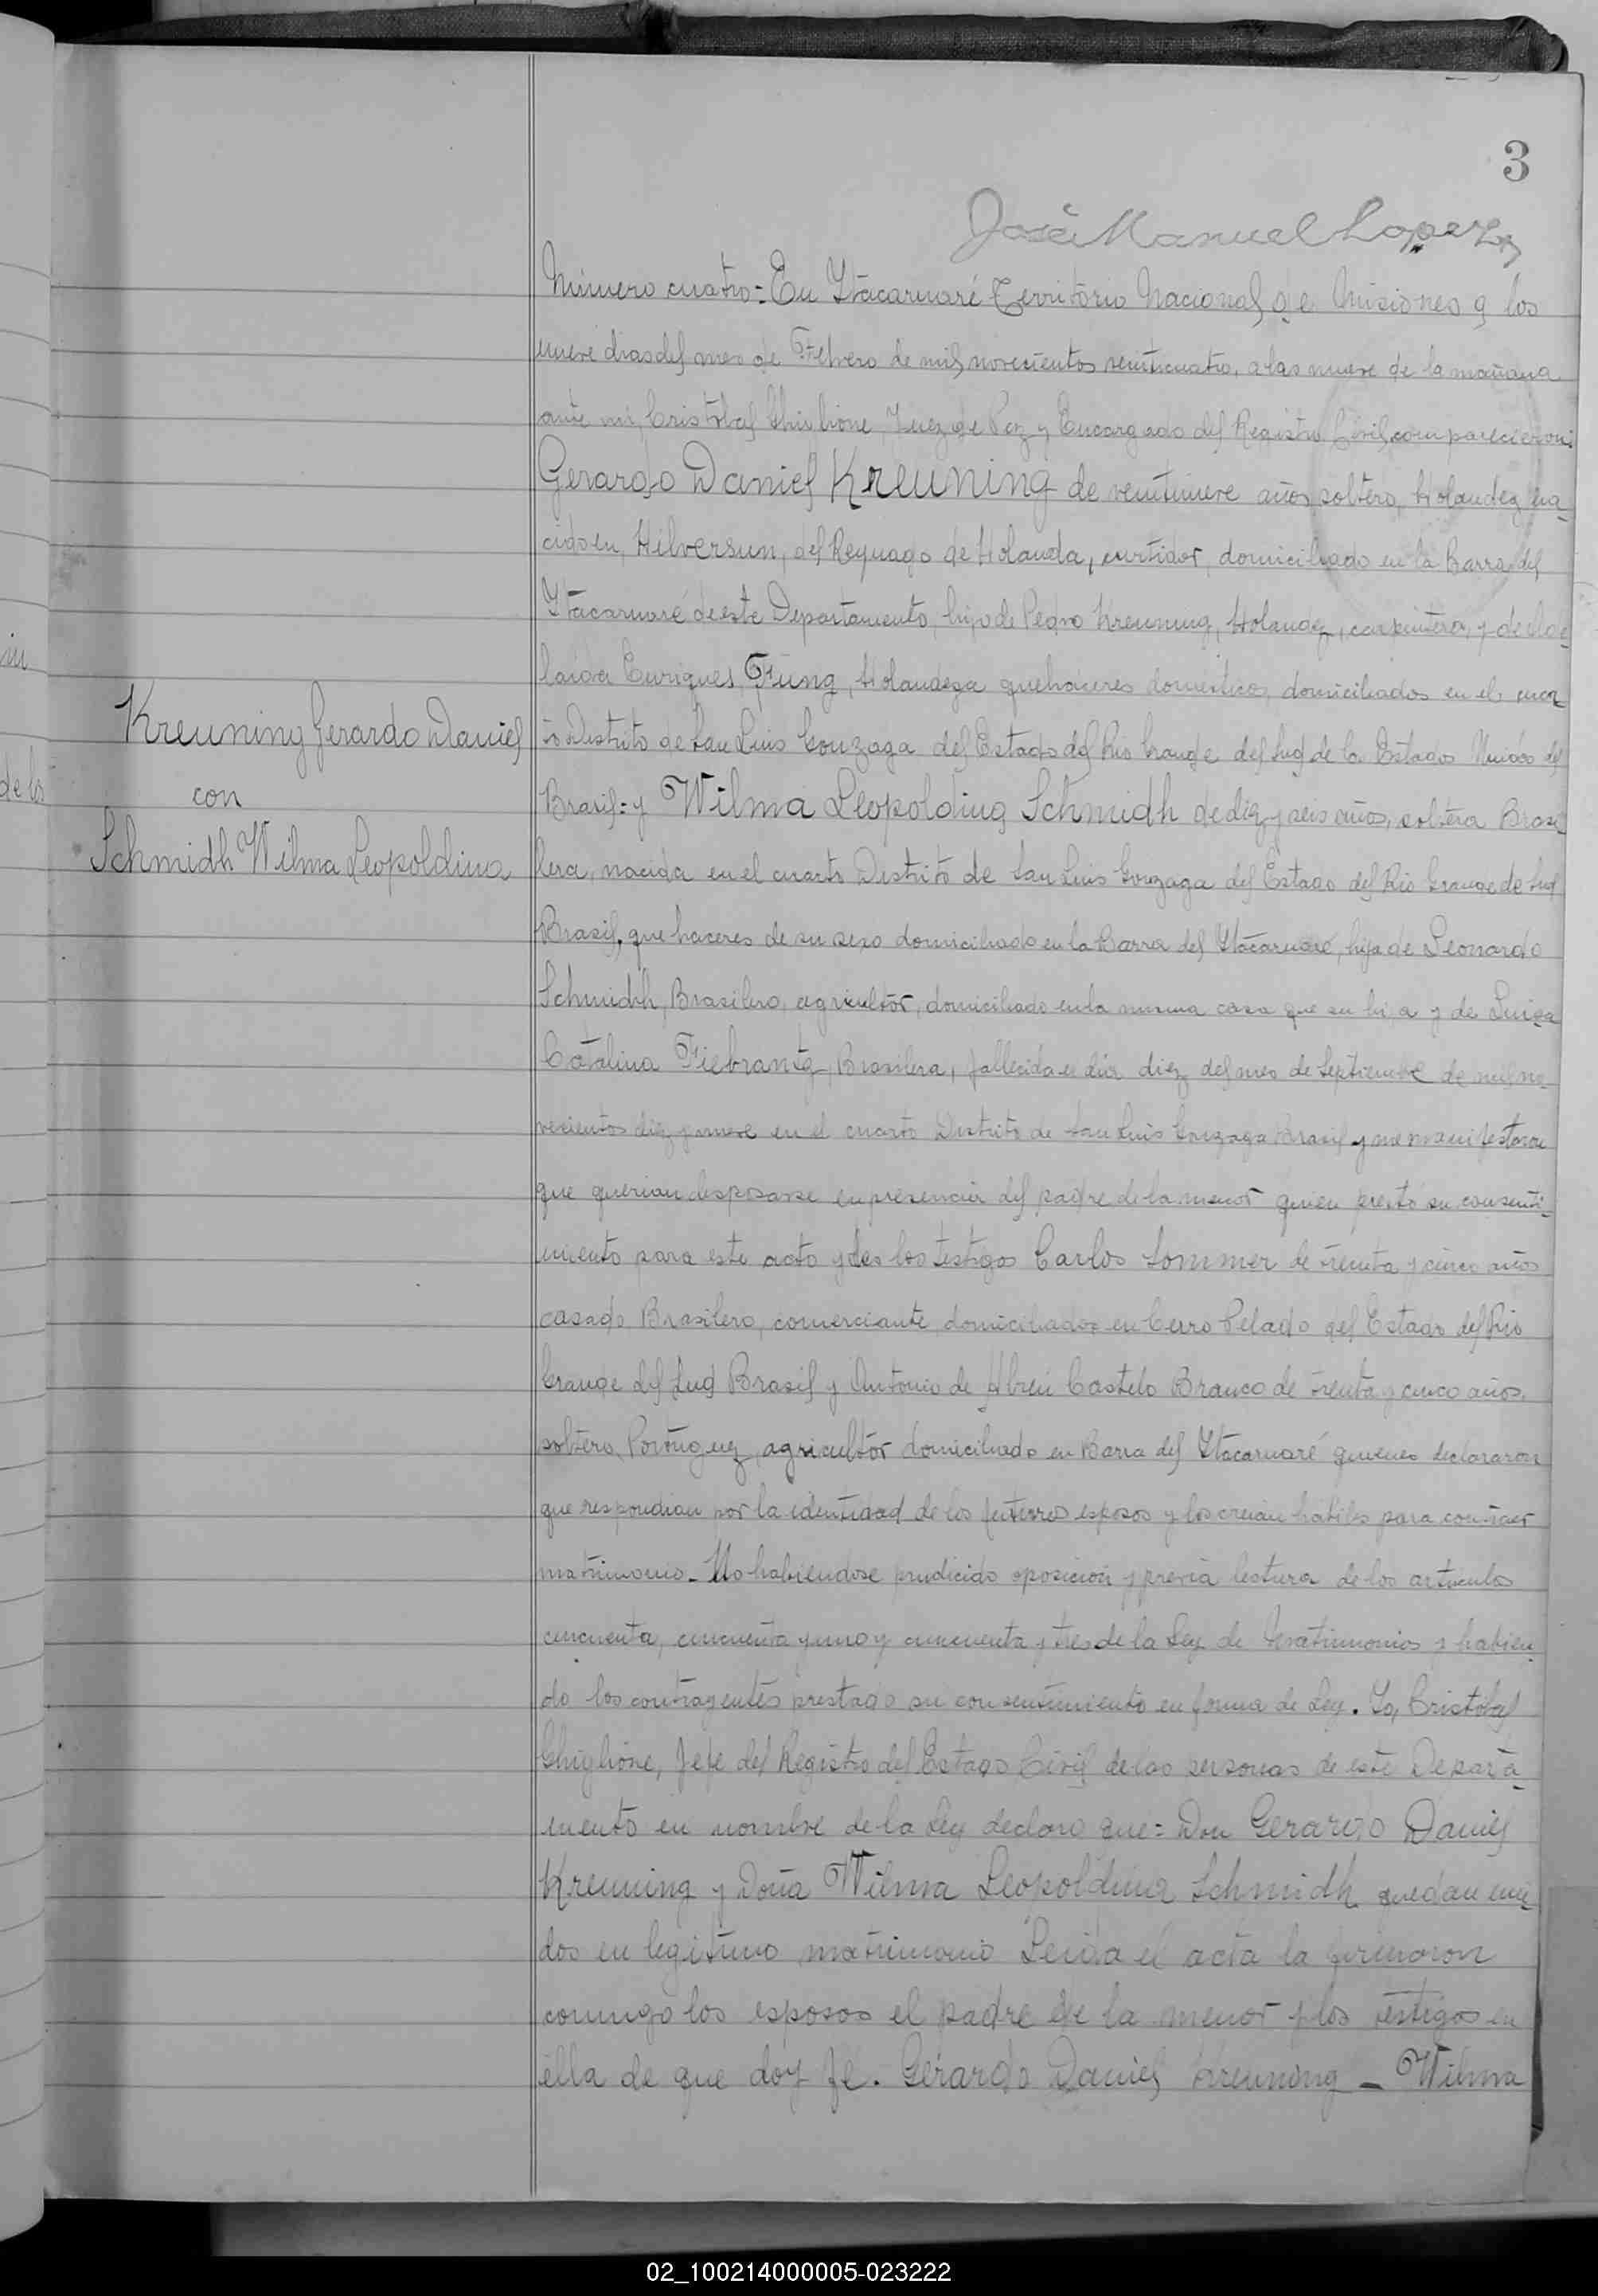 3
José Manuel Lopez
Número cuatro = En Ytacaruaré Territorio Nacional de Misiones a los
nueve dias del mes de Febrero de mil novecientos veinticuatro, a las nueve de la mañana
ante mi, Cristobal Ghiglione, Juez de Paz y Encargado del Registro Civil, comparecieron:
Gerardo Daniel Kreuning de veintinueve años, soltero, Holandez, na-
cido en, Hilversun, del Reynado de Holanda, curtidor, domiciliado en la Barra del
Ytacaruaré de este Departamento, hijo de Pedro Kreuning, Holandez, carpintero, y de Ade-
laida Enriques Fung, Holandeza quehaceres domesticos, domiciliados en el cuar-
to Distrito de San Luis Gonzaga del Estado del Rio Grande del Sud de los Estados Unidos del
Kreuning Gerardo Daniel
con
Schmidh Wilma Leopoldina
Brasil = y Wilma Leopoldina Schmidh de diez y seis años, soltera Brasi
lera, nacida en el cuarto Distrito de San Luis Gonzaga del Estado del Rio Grande de Sud
Brasil, que haceres de su sexo domiciliado en la Barra del Ytacaruaré, hija de Leonardo
Schmidh, Brasilero, agricultor, domiciliado en la misma casa que su hija y de Luiza
Catalina Fiebrantz, Brasilera, fallecida el dia diez del mes de Septiembre de mil no-
vecientos diez y nueve en el cuarto Distrito de San Luis Gonzaga Brasil y me manifestaron
que querian desposarse en presencia del padre de la menor quien prestó su consenti-
miento para este acto y des los testigos Carlos Sommer de treinta y cinco años
casado Brasilero, comerciante, domiciliados en Cerro Pelado del Estado del Rio
Grande del Sud Brasil y Antonio de Abreu Castelo Branco de treinta y cinco años,
soltero, Portuguez, agricultor domiciliado en Barra del Ytacaruaré quienes declararon
que respondian por la identidad de los futuros esposos y los creian habiles para contraer
matrimonio. No habiendose prudicido oposicion y previa lectura de los articulos
cincuenta, cincuenta y uno y cincuenta y tres de la Ley de Matrimonios y habien
do los contrayentes prestado su consentimiento en forma de Ley. Yo, Cristobal
Ghiglione, Jefe del Registro del Estado Civil de las personas de este Departa-
mento en nombre de la Ley declaro que = Don Gerardo Daniel
Kreuning y Doña Wilma Leopoldina Schmidh quedan uni-
dos en legitimo matrimonio Leida el acta la firmaron
conmigo los esposos el padre de la menor y los testigos en
ella de que doy fe. Gerardo Daniel Kreuning – Wilma
in
de los
02_100214000005-023222